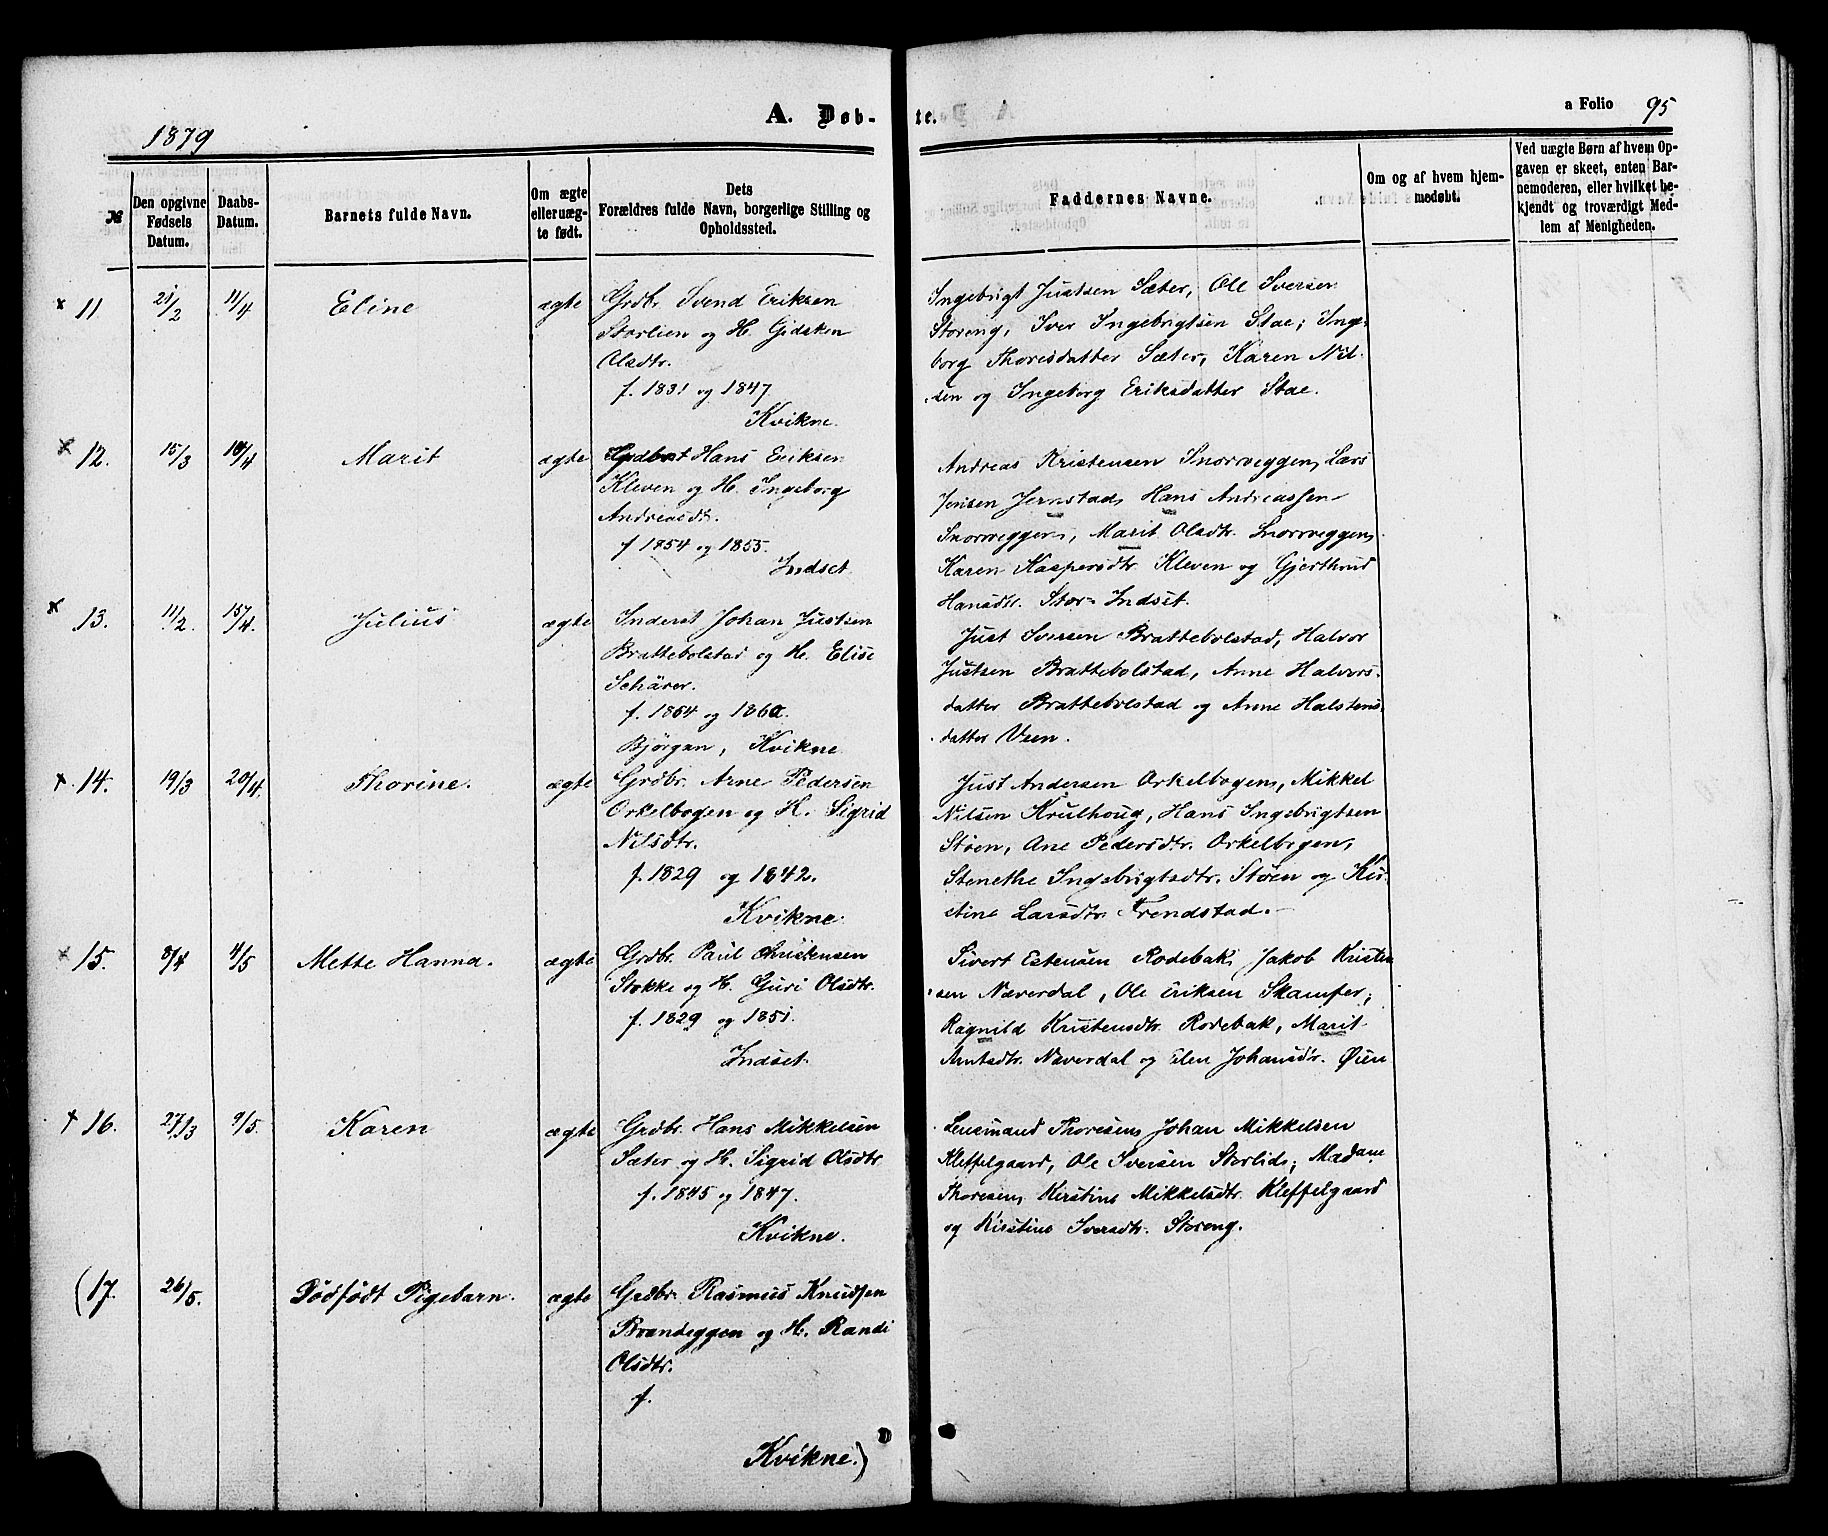 1879
A. Døb-
te.
a Folio 95
№
Den opgivne Fødsels Datum.
Daabs-Datum.
Barnets fulde Navn.
Om ægte eller uæg-te født.
Dets
Forældres fulde Navn, borgerlige Stilling og Opholdssted.
Faddernes Navne.
Om og af hvem hjem-medøbt.
Ved uægte Børn af hvem Op-gaven er skeet, enten Bar-nemoderen, eller hvilket be-kjendt og troværdigt Med-lem af Menigheden.
x 11 21/2 11/4 Eline ægte Grdbr. Svend Eriksen
Storlien og H. Gidsken
Olsdtr.
f. 1831 og 1847
Kvikne.
Ingebrigt Justsen Sæter, Ole Iversen
Storeng, Iver Ingebrigtsen Stae; Inge-
borg Thoresdatter Sæter, Karen Nil-
sen og Ingeborg Eriksdatter Stae.
x 12. 15/3 14/4 Marit ægte Hans Eriksen
Kleven og H. Ingeborg
Andreasdt.
f 1854 og 1855.
Indset
Andreas Kristensen Snorveggen, Lars
Jensen Jernstad, Hans Andreassen
Snorveggen, Marit Olsdtr. Snorveggen,
Karen Kaspersdtr Kleven og Gjertrud
Hansdtr. Stor-Indset.
x 13. 11/2. 15/4. Julius ægte Inderst Johan Justsen
Brattebolstad og H. Elise
Schärer.
f. 1854 og 1860.
Bjørgan, Kvikne
Just Iversen Brattebolstad, Halvor
Justsen Brattebolstad, Anne Halvors-
datter Brattebolstad og Anne Halstens-
datter Veen.
+ 14. 19/3 20/4. Thorine. ægte Grdbr. Arne Pedersen
Orkelbogen og H. Sigrid
Nilsdtr.
f. 1829 og 1842.
Kvikne.
Just Andersen Orkelbogen, Mikkel
Nilsen Krulhoug, Hans Ingebrigtsen
Støen, Ane Pedersdtr. Orkelbogen,
Stenethe Ingebrigtsdtr. Støen og Kir-
stine Larsdtr. Frendstad.
x 15. 8/4 4/5 Mette Hanna. ægte Grdbr. Paul Christensen
Stokke og H. Guri Olsdtr.
f. 1829 og 1851.
Indset.
Sivert Estensen Rodebak, Jakob Kristen-
sen Næverdal, Ole Eriksen Skamfer;
Ragnild Kristensdtr. Rodebak, Marit
Arntsdtr. Næverdal og Elen Johansdtr. Øien
+ 16. 27/3 9/5. Karen ægte Grdbr. Hans Mikkelsen
Sæter og H. Sigrid Olsdtr.
f. 1845 og 1847.
Kvikne.
Lensmand Thoresen, Johan Mikkelsen
Kleffelgaard, Ole Iversen Storlid; Madame
Thoresen, Kerstine Mikkelsdtr. Kleffelgaard
og Kirstine Iversdtr. Storeng.
(17. 26/5. Dødfødt Pigebarn. ægte Grdbr. Rasmus Knudsen
Brandeggen og H. Randi
Olsdtr.
f.
Kvikne.)